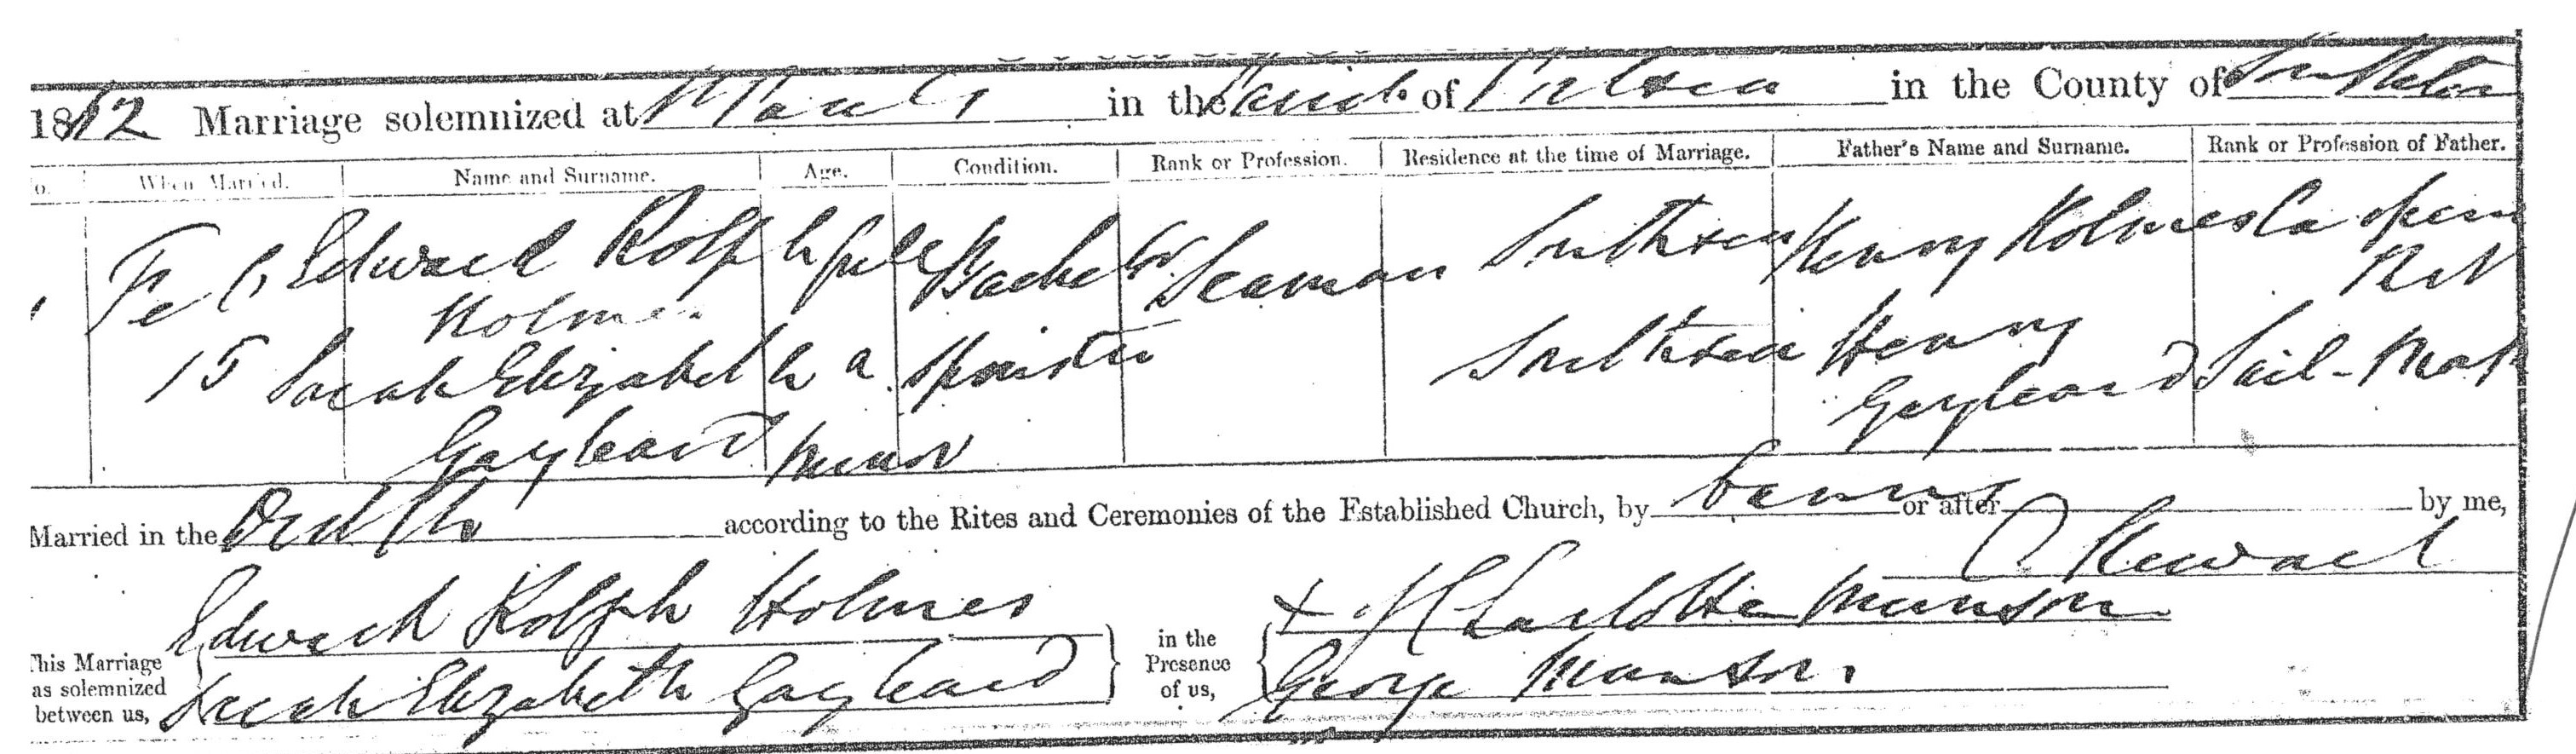 18 2 Marriage solemnized at St Pauls in the Parish of Portsea in the County of Southton
o. When Married. Name and Surname. Age. Condition. Rank or Profession. Residence at the time of Marriage. Father's Name and Surname. Rank or Profession of Father.
Feb Edward Rolph full Bachelor Seaman Southsea Henry Holmes
Holmes RN
15 Sarah Elizabeth a Spinster Southsea Henry Sail-Mak
Gayleard minor Gayleard
Married in the according to the Rites and Ceremonies of the Established Church, by banns or after by me,
Stewart
This Marriage as solemnized between us,
Edward Rolph Holmes
Sarah Elizabeth Gayleard
in the Presence of us,
+ Charlotte Munson
George Munson